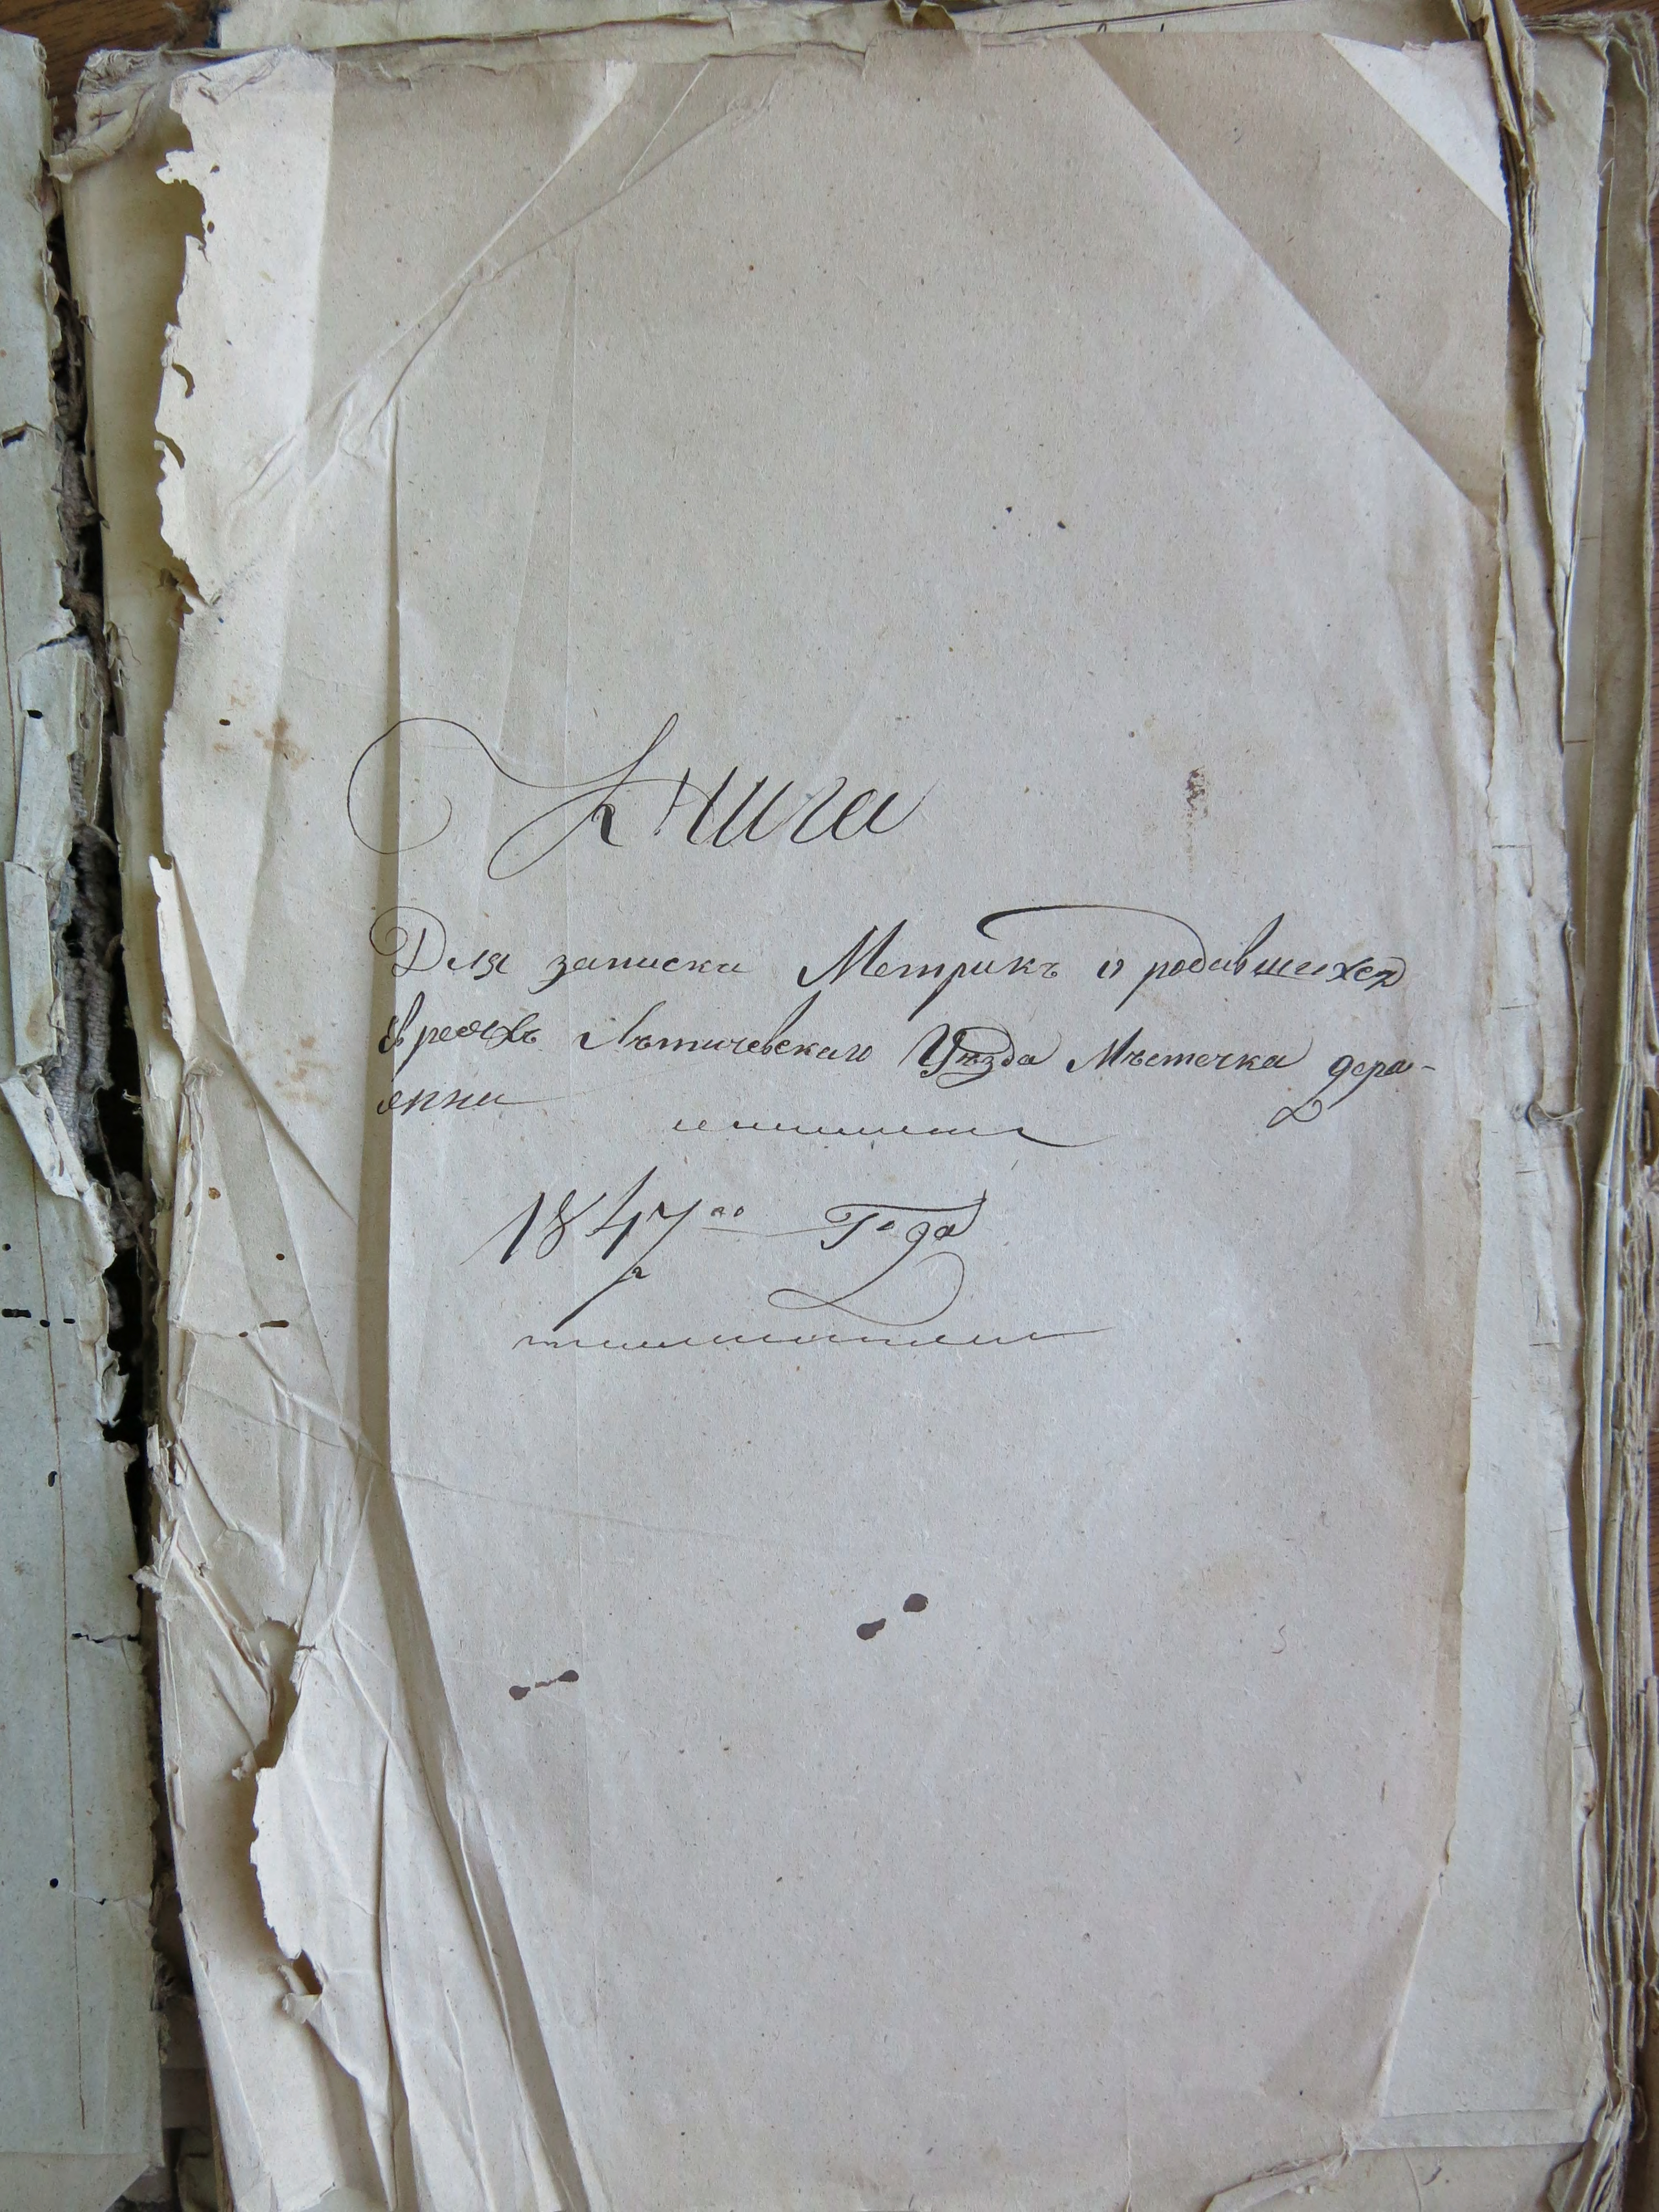 Книга
Для записки Метрикъ о родавшихся
Евреяхъ Лѣтичевскаго Уѣзда Мѣстечка дера-
жни
1847го Года